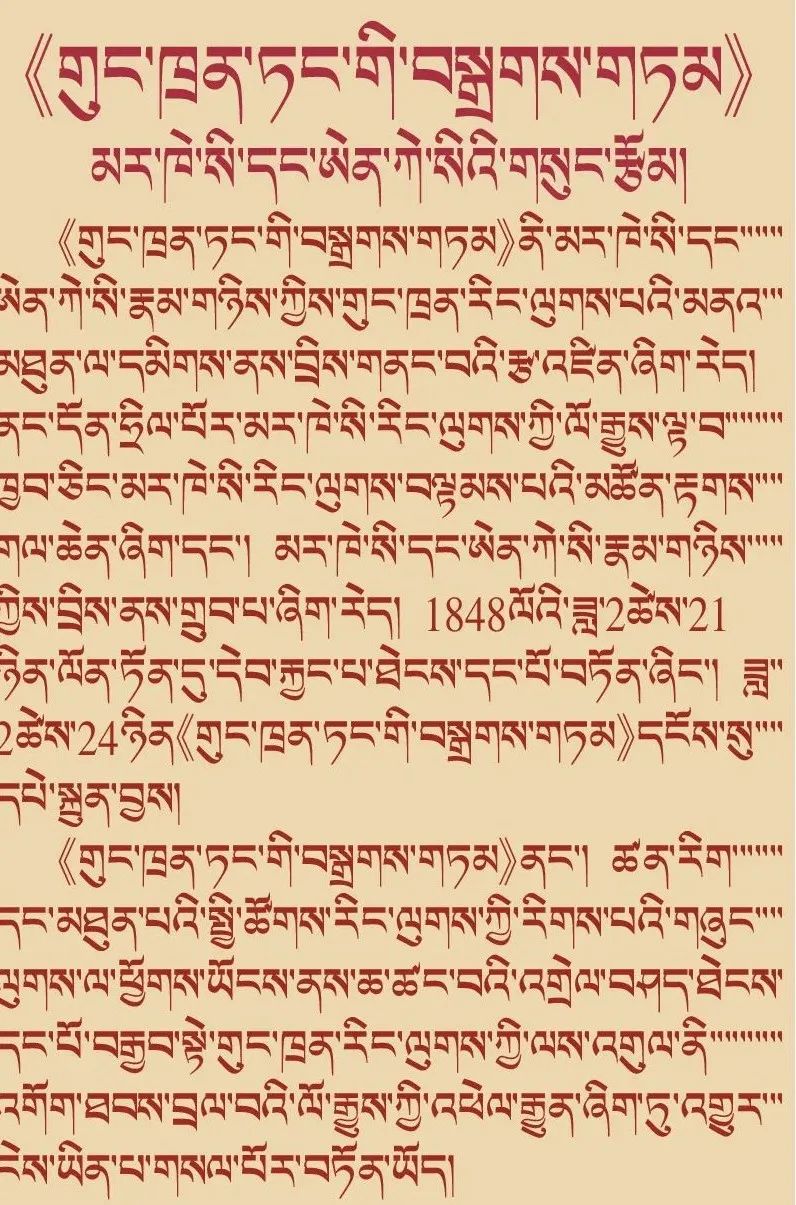 《གུང་ཁྲན་ཏང་གི་བསྒྲགས་གཏམ》
མར་ཁེ་སི་དང་ཨེན་ཀེ་སིའི་གསུང་རྩོམ།
《གུང་ཁྲན་ཏང་གི་བསྒྲགས་གཏམ》ནི་མར་ཁེ་སི་དང་་་་་་
ཨེན་ཀེ་སི་རྣམ་གཉིས་ཀྱིས་གུང་ཁྲན་རིང་ལུགས་པའི་མནའ་་་
མཐུན་ལ་དམིགས་ནས་བྲིས་གནང་བའི་རྩ་འཛིན་ཞིག་རེད།
ནང་དོན་ཧྲིལ་པོར་མར་ཁེ་སི་རིང་ལུགས་ཀྱི་ལོ་རྒྱུས་ལྟ་བ་་་་་་་
ཁྱབ་ཅིང་མར་ཁེ་སི་རིང་ལུགས་བལྟམས་པའི་མཚོན་རྟགས་་་་་
གལ་ཆེན་ཞིག་དང་། མར་ཁེ་སི་དང་ཨེན་ཀེ་སི་རྣམ་གཉིས་་་་་
ཀྱིས་བྲིས་ནས་གྲུབ་པ་ཞིག་རེད། 1848ལོའི་ཟླ་2ཚེས་21
ཉིན་ལོན་ཏོན་དུ་དེབ་རྐྱང་པ་ཐེངས་དང་པོ་བཏོན་ཞིང་། ཟླ་་
2ཚེས་24ཉིན《གུང་ཁྲན་ཏང་གི་བསྒྲགས་གཏམ》དངོས་སུ་་་་
དཔེ་སྐྲུན་བྱས།
《གུང་ཁྲན་ཏང་གི་བསྒྲགས་གཏམ》ནང་། ཚན་རིག་་་་་་
དང་མཐུན་པའི་སྤྱི་ཚོགས་རིང་ལུགས་ཀྱི་རིགས་པའི་གཞུང་་་་
ལུགས་ལ་ཕྱོགས་ཡོངས་ནས་ཆ་ཚང་བའི་འགྲེལ་བཤད་ཐེངས་
དང་པོ་བརྒྱབ་སྟེ་གུང་ཁྲན་རིང་ལུགས་ཀྱི་ལས་འགུལ་ནི་་་་་་་་
འགོག་ཐབས་བྲལ་བའི་ལོ་རྒྱུས་ཀྱི་འཕེལ་རྒྱུན་ཞིག་ཏུ་འགྱུར་་་
ངེས་ཡིན་པ་གསལ་པོར་བཏོན་ཡོད།